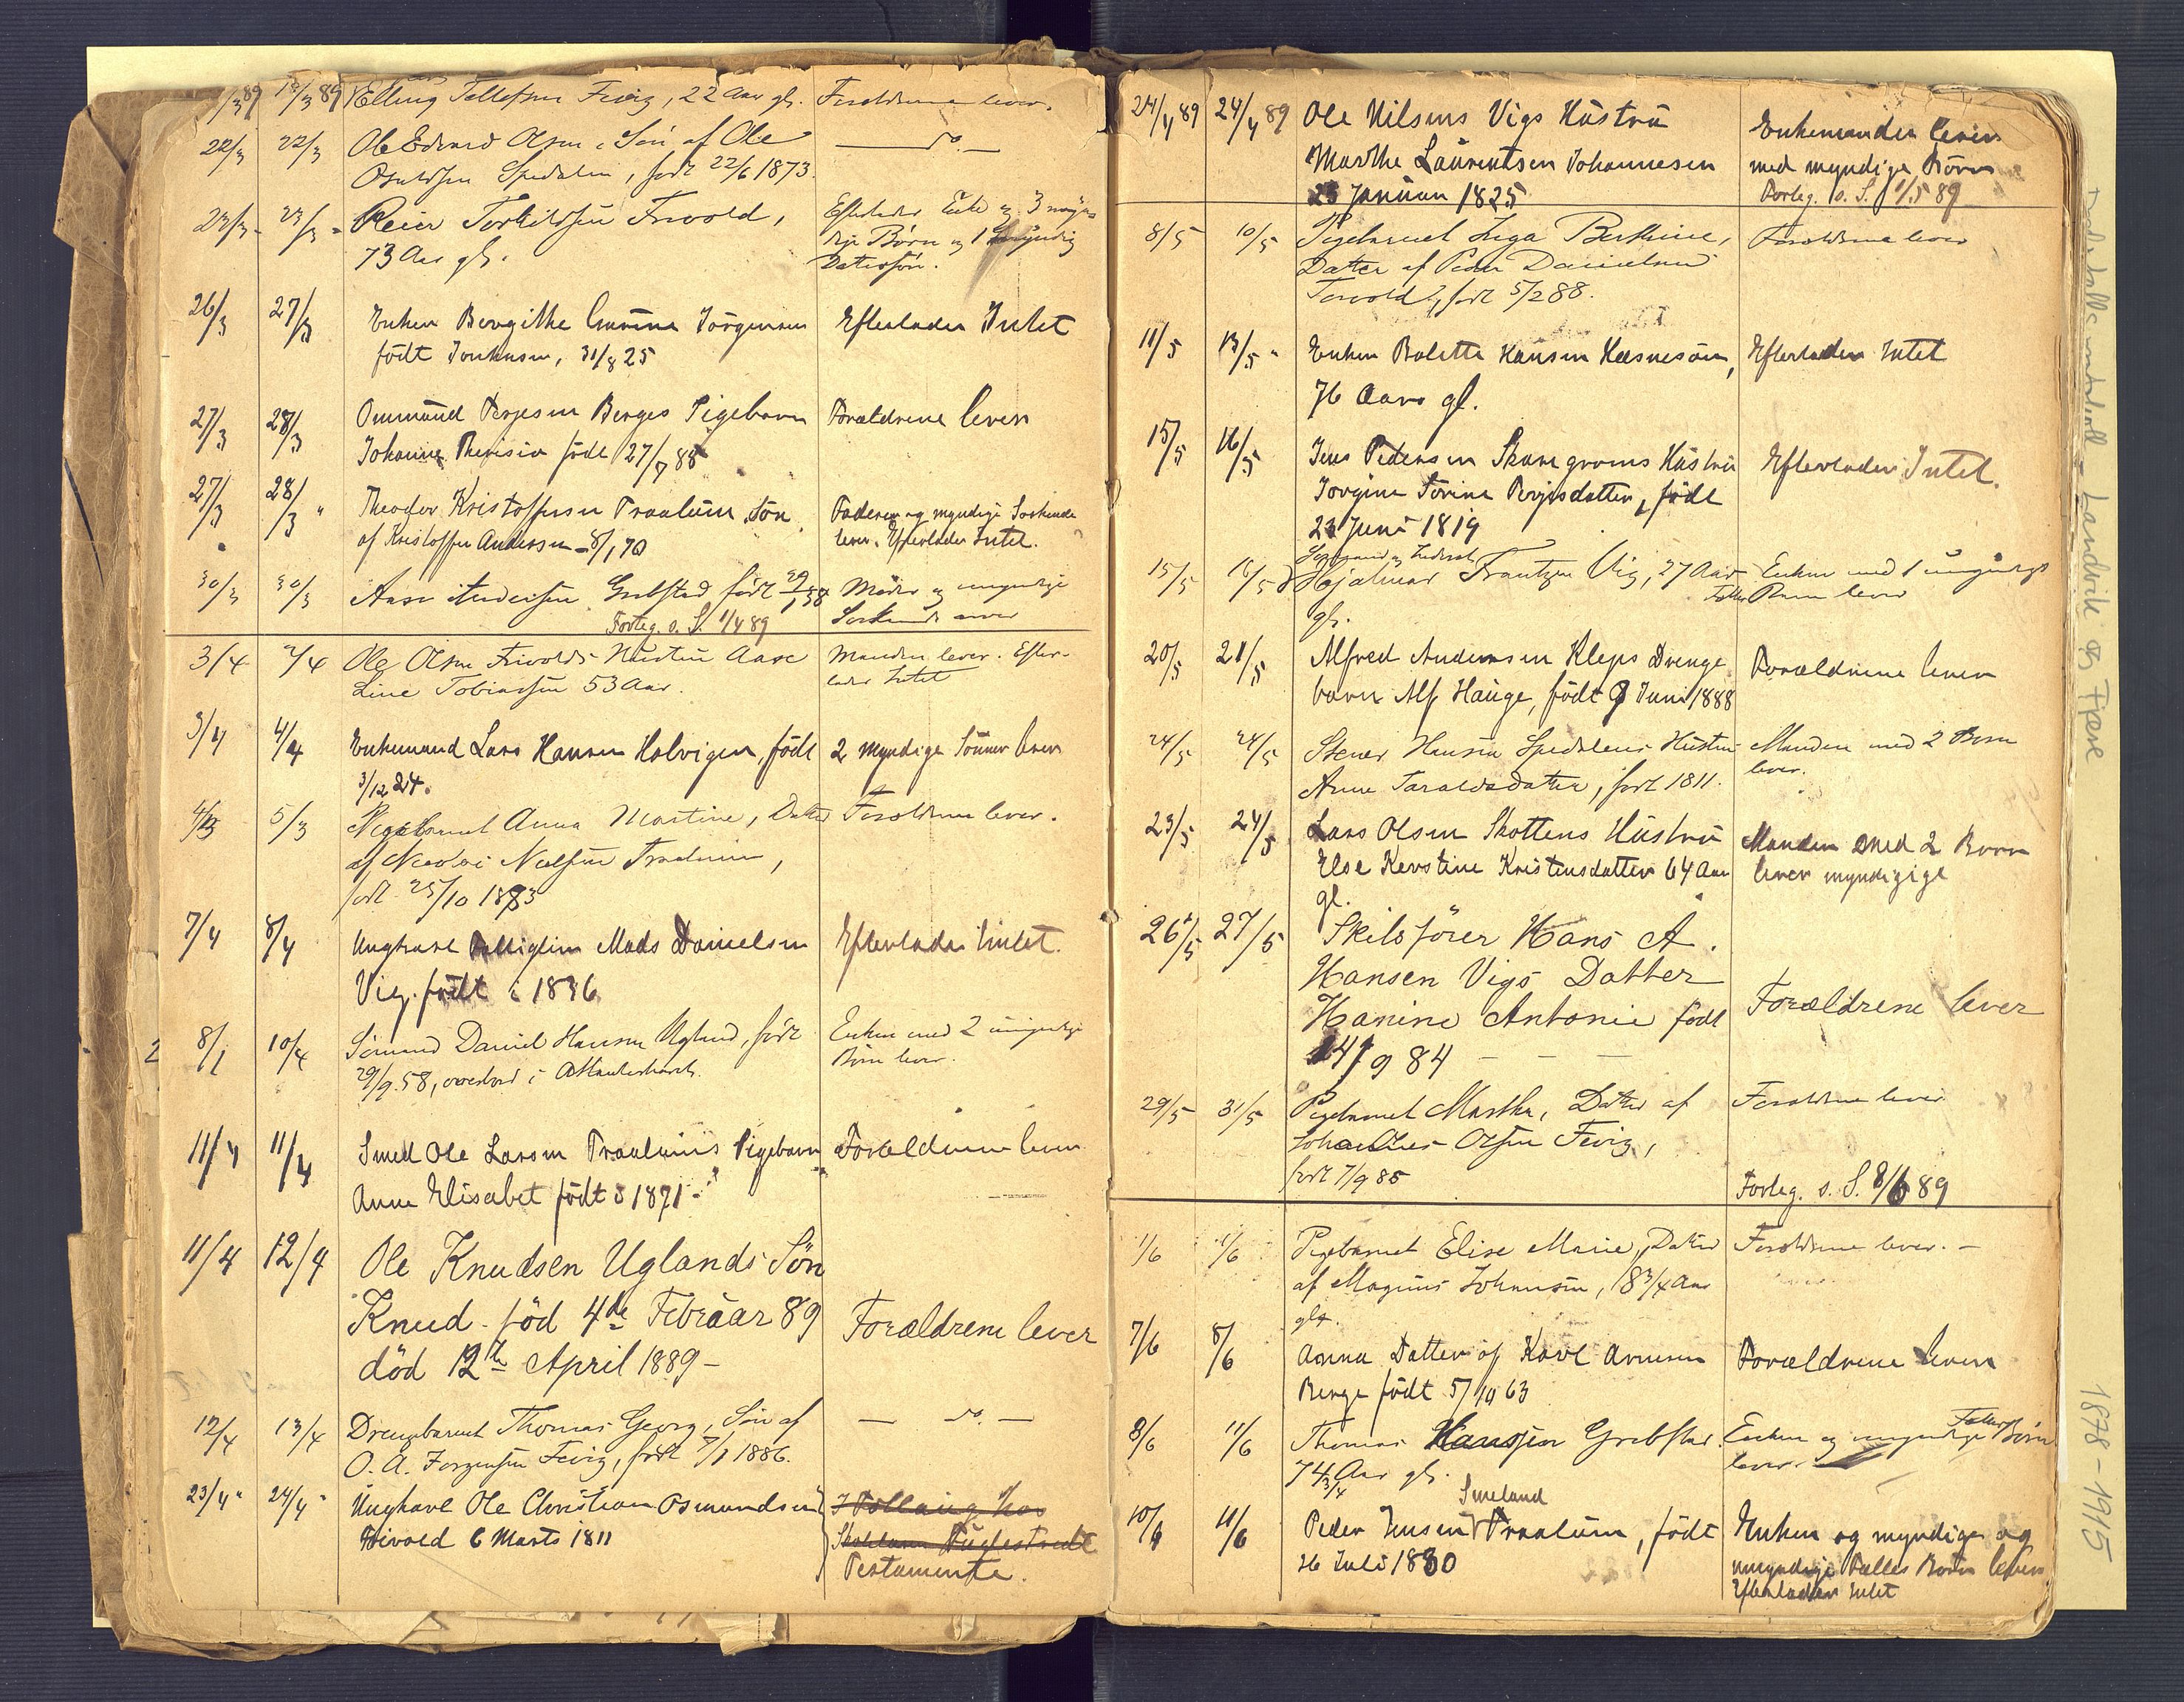 /3 89 18/3 89 Elling Tellefsen Fevig, 22 Aar gl. Forældrene lever.
22/3 22/3 Ole Edvard Olsen, Søn af Ole — do. —
Osuldsen Spedalen, født 22/6 1873.
23/3 23/3 Reier Torkildsen Frivold, Efterlader Enke og 3 myn-
73 Aar gl. dige Børn og 1 umyndig
Dattersøn.
26/3 27/3 Enken Bergithe Jörgensen Efterlader Intet
födt 31/8 25
27/3 28/3 Ommund Terjesen Berges Pigebarn Forældrene lever
Johanne Theresia födt 27/7 88
27/3 28/3 " Theodor Kristoffersen Traalum, Sön Faderen og myndige Soskende
af Kristoffer Andersen 8/1 70 lever. Efterlader Intet.
30/3 30/3 Aase Andersen Grebstad født 29/1 38 Moder og umyndige
Forteg. s. S. 1/4 89 Søskende lever
3/4 4/4 Ole Olsen Frivolds Hustru Aase Manden lever. Efter-
Line Tobiassen 53 Aar. lader Intet
3/4 4/4 Enkemand Lars Hansen Holvigen, födt 2 myndige Sönner lever
3/12 24.
4/3 5/3 Pigebarnet Anna Martine, Datter Forældrene lever.
af Nicolai Nielsen Traalum,
født 25/10 1883
7/4 8/4 Ungkarl Mads Danielsen Efterlader Intet.
Vig. födt i 1836
2 8/1 10/4 Sømand Daniel Hansen Ugland, født Enken med 2 umyndige
29/9 58, overbord i Atlanterhavet. Børn lever.
11/4 11/4 Smed Ole Larsen Traalums Pigebarn Forældrene lever
Anne Elisabet födt i 1871
11/4 12/4 Ole Knudsen Uglands Sön
Knud - föd 4de Februar 89 Forældrene lever
död 12te April 1889 –
12/4 13/4 Drengebarnet Thomas Georg, Søn af — do. —
O. A. Jorgensen Fevig, født 7/1 1886.
23/4 " 24/4 " Ungkarl Ole Christian Osmundsen
Frivold 6 Marts 1811
Testamente.
24/4 89 24/4 89 Ole Nilsens Vigs Hustru Enkemanden lever
Marthe Laurentsen Johannesen med myndige Børn
25 Januar 1825 Forteg. s. S. 1/5 89
8/5 10/5 Pigebarnet Inga Berthine, Forældrene lever
Datter af Peder Danielsen
født 5/2 88.
11/5 13/5 Enken Bolette Hansen Hæsnesöen, Efterlader Intet
76 Aars gl.
15/5 16/5 Jens Pedersen Skaregroms Hustru Efterlader Intet.
Jorgine Sörine Terjesdatter, födt
23 Juni 1819
15/5 16/5 Hjalmar Frantzen Vig, 27 Aar Enken med 1 umyndigt
gl. Fælles Barn lever
20/5 21/5 Alfred Andersen Kleps Drenge Forældrene lever
barn Alf Hauge, födt 9 Juni 1888
24/5 24/5 Stener Hansen Spedalens Hustru Manden med 2 Børn
Anne Taraldsdatter, født 1811. lever.
23/5 24/5 Lars Olsen Skottens Hustru Manden med 2 Børn
Else Kerstine Kristensdatter 64 Aar lever myndigige
gl.
26/5 27/5 Skibsförer Hans A.
Hansen Vigs Datter
Hanine Antonie födt Forældrene lever
14/9 84 – – –
29/5 31/5 Pigebarnet Martha, Datter af Forældrene lever
Johannes Olsen Fevig,
født 7/9 85
Forteg. s. S. 8/6 89
1/6 1/6 Pigebarnet Elise Marie, Datter Forældrene lever. –
af Magnus Johansen, 18 3/4 Aar
gl.
7/6 8/6 Anna Datter af Karl Arnesen Forældrene lever
Berge födt 5/10 63
8/6 11/6 Thomas Hansen Grebstad Enken og myndige Fælles Børn
74 3/4 Aar gl. lever.
Smeland
10/6 11/6 Peder Jensen Traalum, födt Enken og myndige og
26 Juli 1830 umyndige Fælles Børn lever
Efterlader Intet
Landvik og Fjære
1878-1915